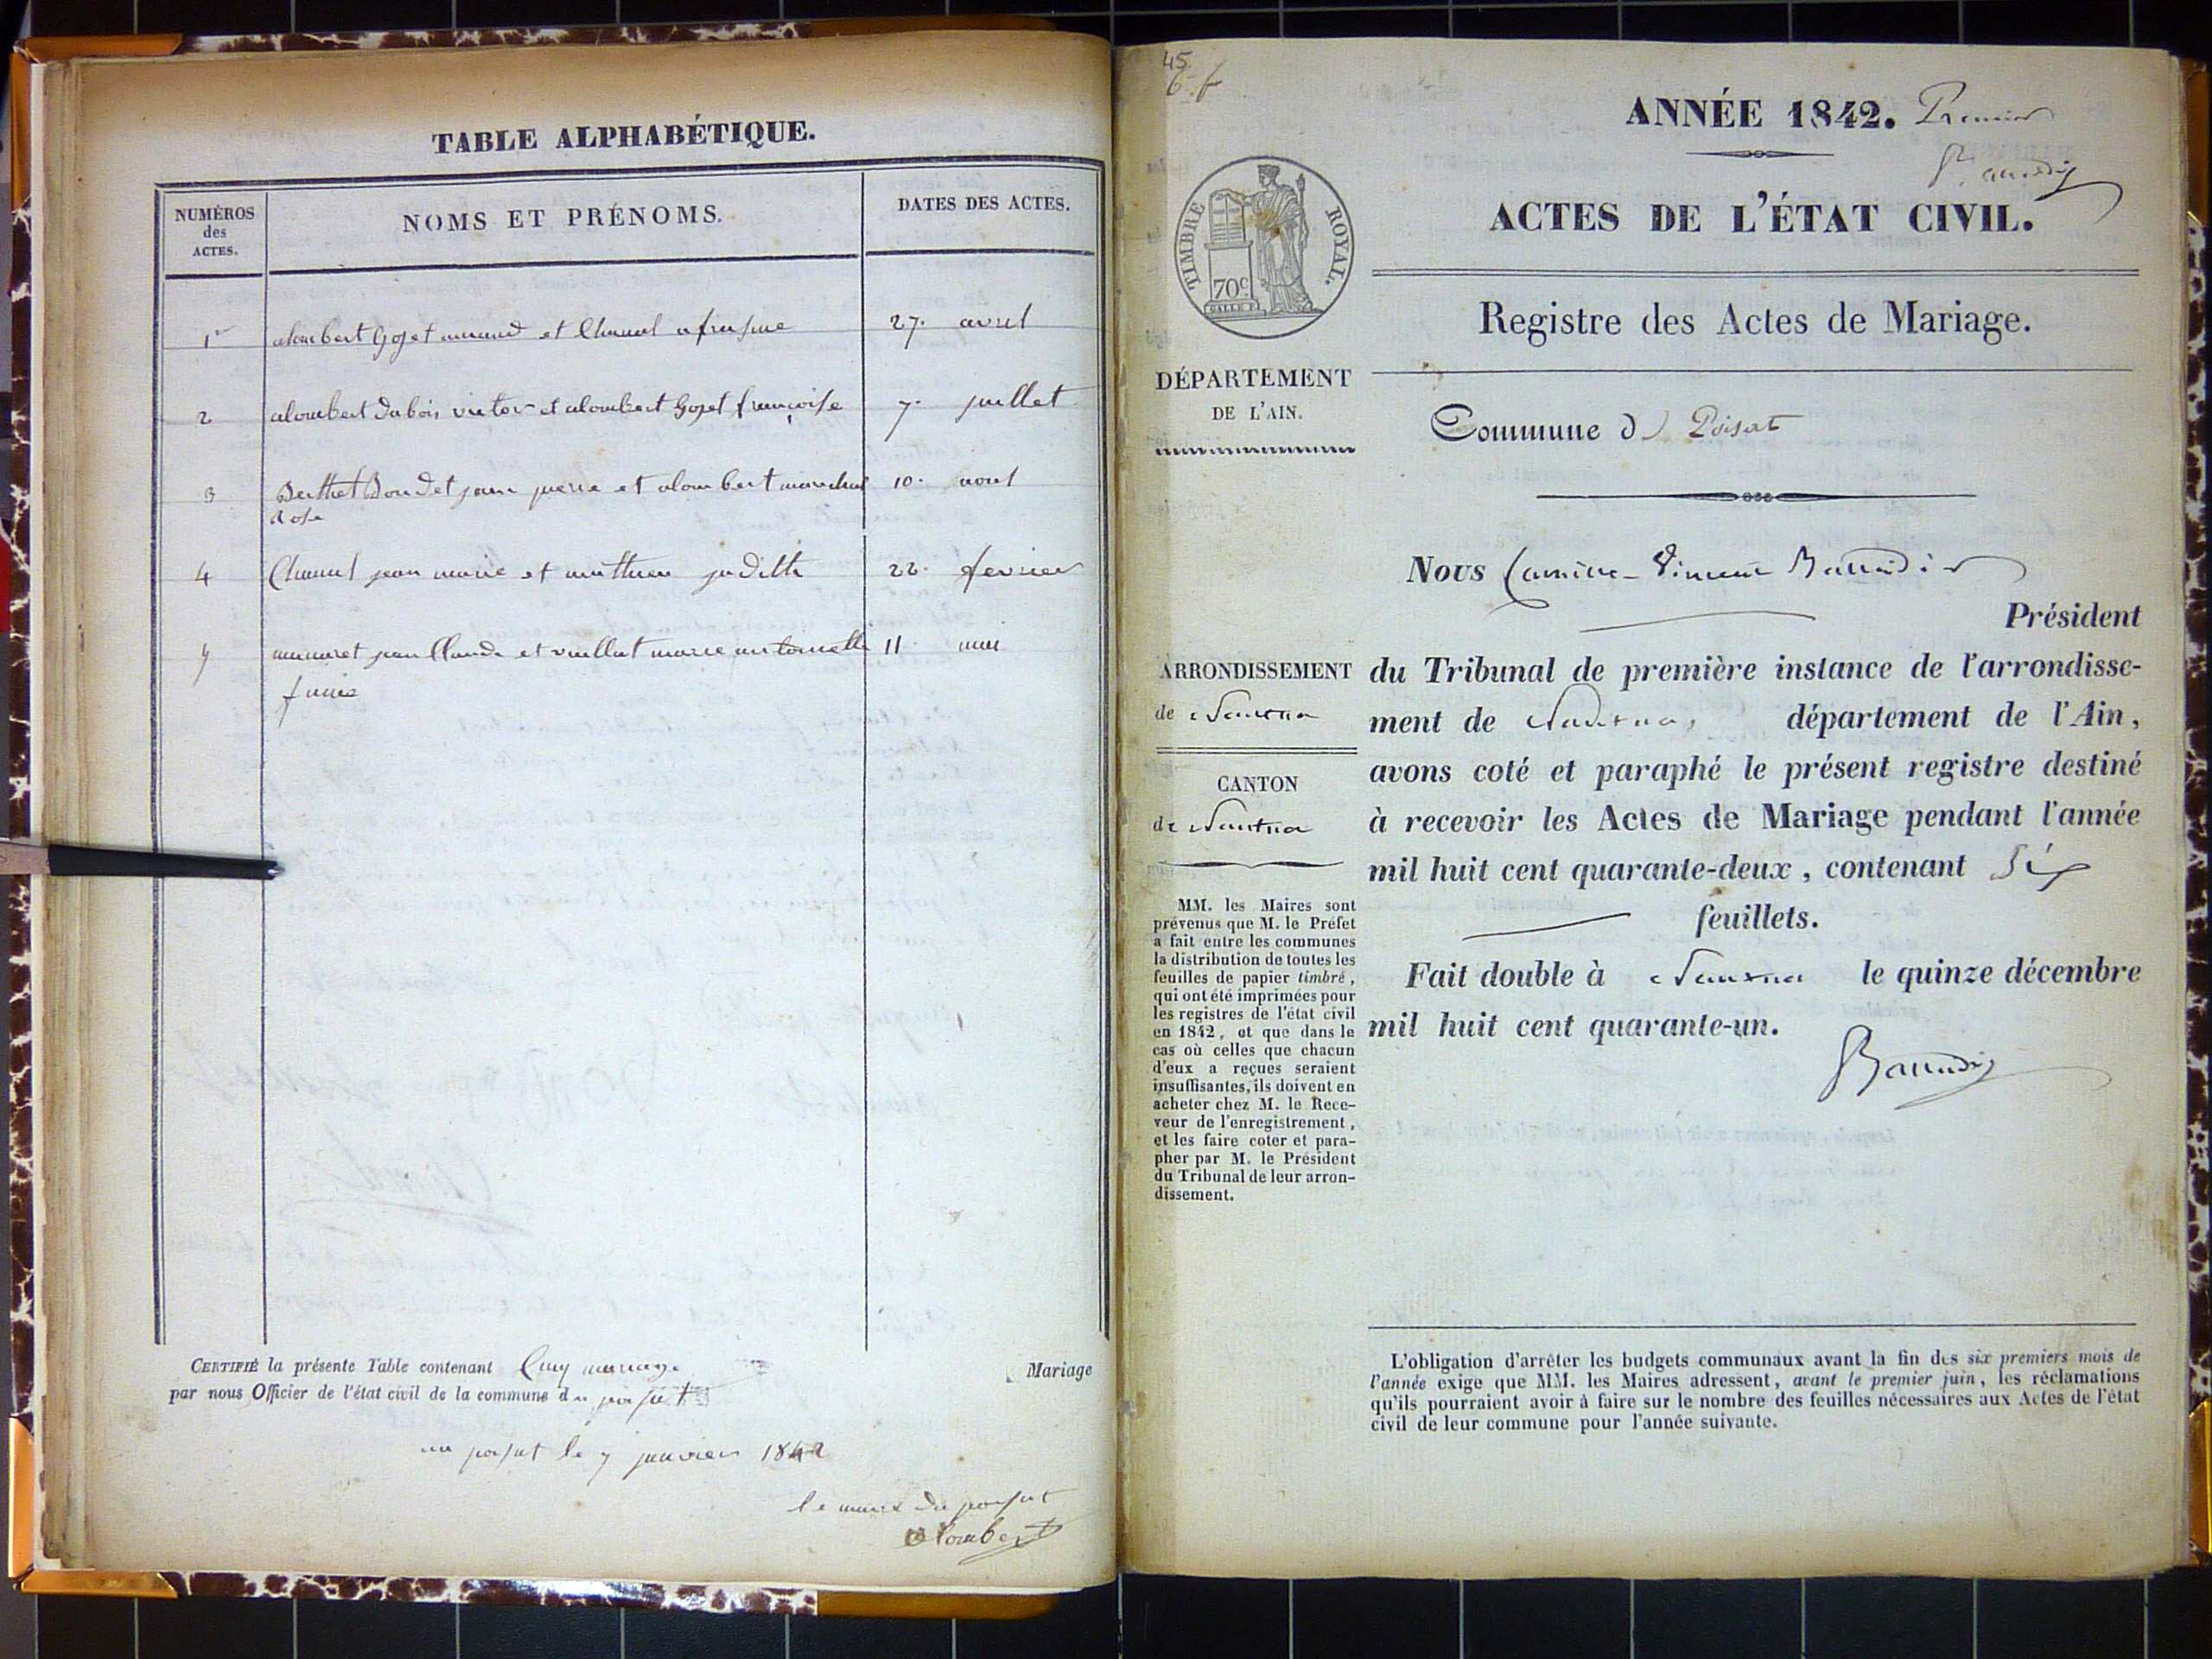 TABLE ALPHABÉTIQUE.
NUMÉROS
des
ACTES.
NOMS ET PRÉNOMS.
DATES DES ACTES.
1er alombert Gojet armand et Chanel 27. avril
2 alombert dubois victor et alombert Gojet françoise 7. juillet
3 Berthet Bondet jean pierre et alombert marechal 10. aout
Rose
4 Chanel jean marie et mathieu judith 22. fevrier
5 jean Claude et vuillat marie antoinette 11 mai
CERTIFIÉ la présente Table contenant Cinq mariage Mariage
par nous Officier de l'état civil de la commune du poisat
au poisat le 7 janvier 1842
le maire du poisat
alombert
45
6. f
ANNÉE 1842. Premier
Baudin
ACTES DE L'ÉTAT CIVIL.
TIMBRE ROYAL.
70c
Registre des Actes de Mariage.
DÉPARTEMENT
DE L'AIN.
Commune d Poisat
Nous Vincent
Président
ARRONDISSEMENT
de Nantua
CANTON
de Nantua
du Tribunal de première instance de l'arrondisse-
ment de Nantua, département de l'Ain,
avons coté et paraphé le présent registre destiné
à recevoir les Actes de Mariage pendant l'année
mil huit cent quarante-deux, contenant Six
feuillets.
Fait double à Nantua le quinze décembre
mil huit cent quarante-un.
MM. les Maires sont
prévenus que M. le Préfet
a fait entre les communes
la distribution de toutes les
feuilles de papier timbré,
qui ont été imprimées pour
les registres de l'état civil
en 1842, et que dans le
cas où celles que chacun
d'eux a reçues seraient
insuffisantes, ils doivent en
acheter chez M. le Rece-
veur de l'enregistrement,
et les faire coter et para-
pher par M. le Président
du Tribunal de leur arron-
dissement.
L'obligation d'arrêter les budgets communaux avant la fin des six premiers mois de
l'année exige que MM. les Maires adressent, avant le premier juin, les réclamations
qu'ils pourraient avoir à faire sur le nombre des feuilles nécessaires aux Actes de l'état
civil de leur commune pour l'année suivante.